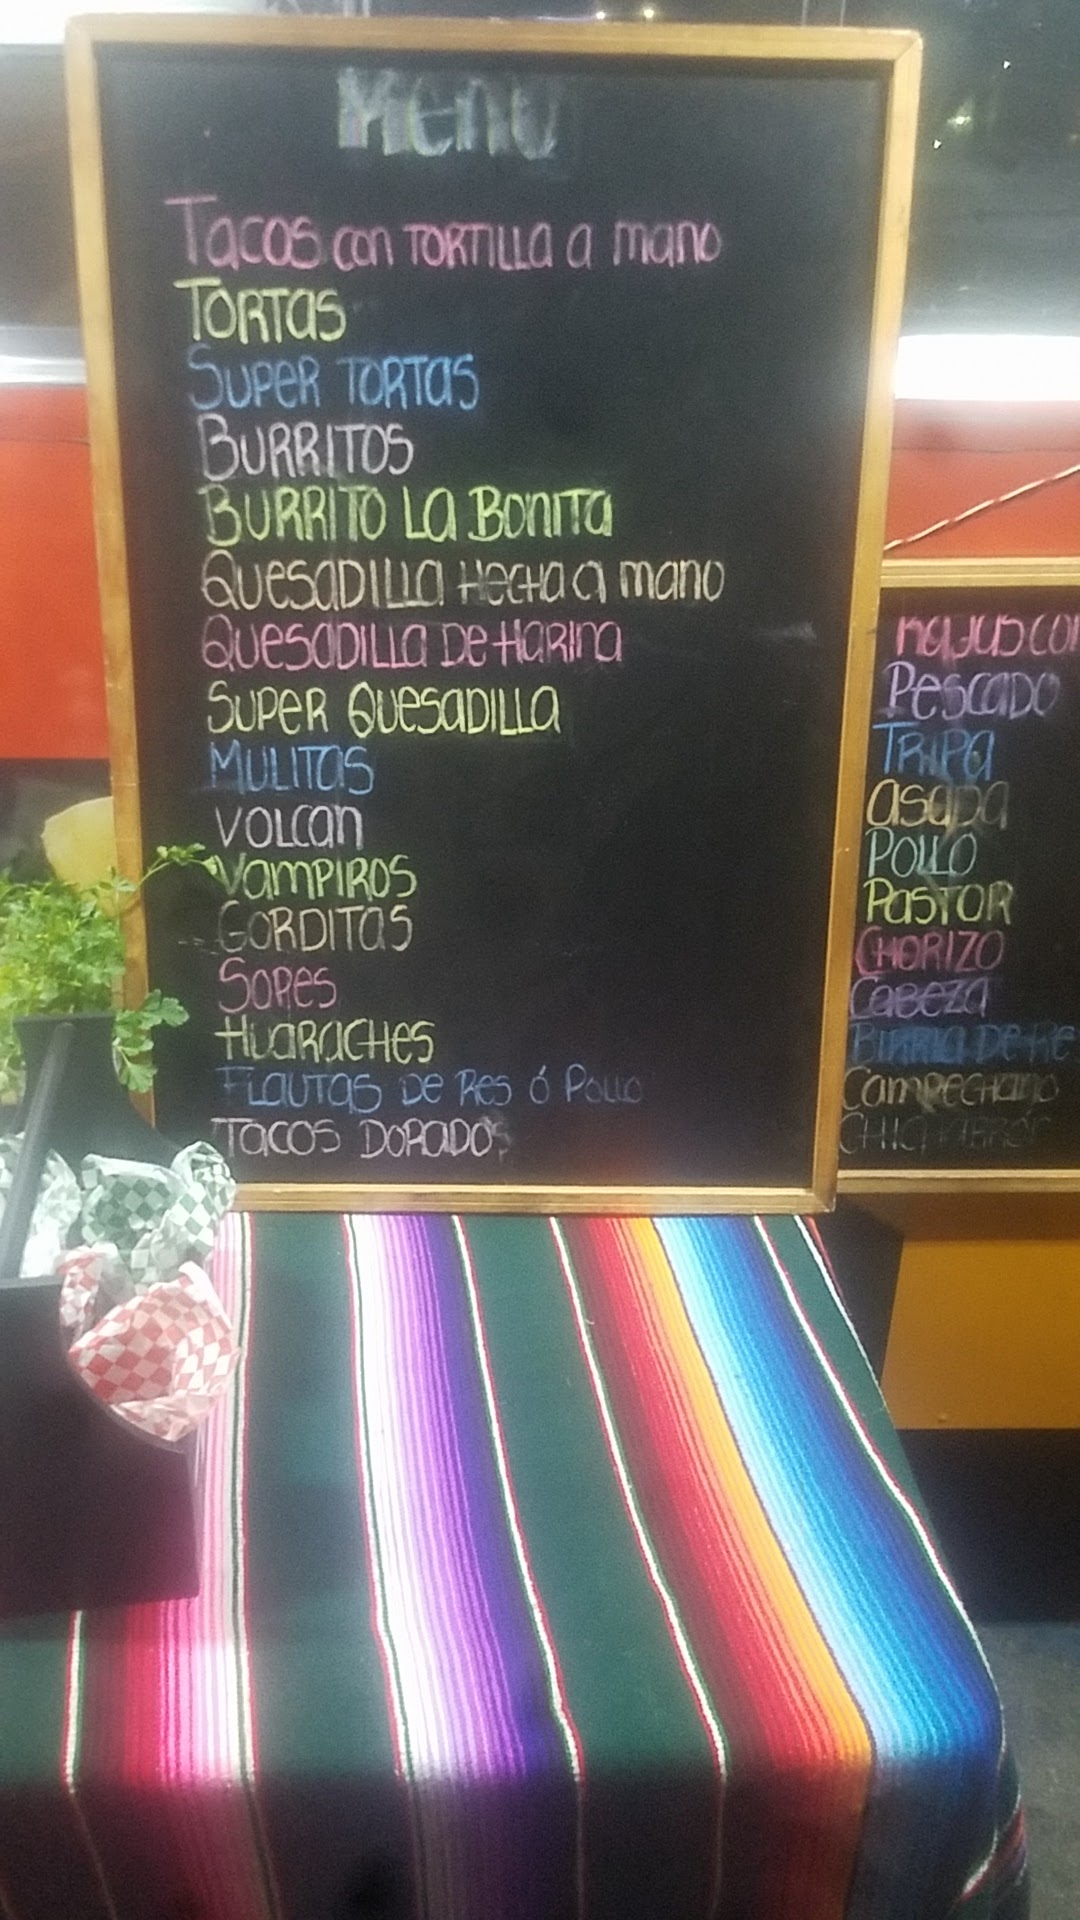 Menu
Tacos con TORTILLA a mano
TORTAS
SUPER TORTAS
BURRITOS
BURRITO LA BONITA
QUESADILLA HECHA a mano
QUESADILLA DE HARINA
SUPER QUESADILLA
MULITAS
VOLCAN
VAMPIROS
GORDITAS
SOPES
HUARACHES
FLAUTAS DE RES ó POLLO
TACOS DORADOS
PESCADO
TRIPA
ASADA
POLLO
PASTOR
CHORIZO
CABEZA
BIRRIA DE RE
CAMPECHANO